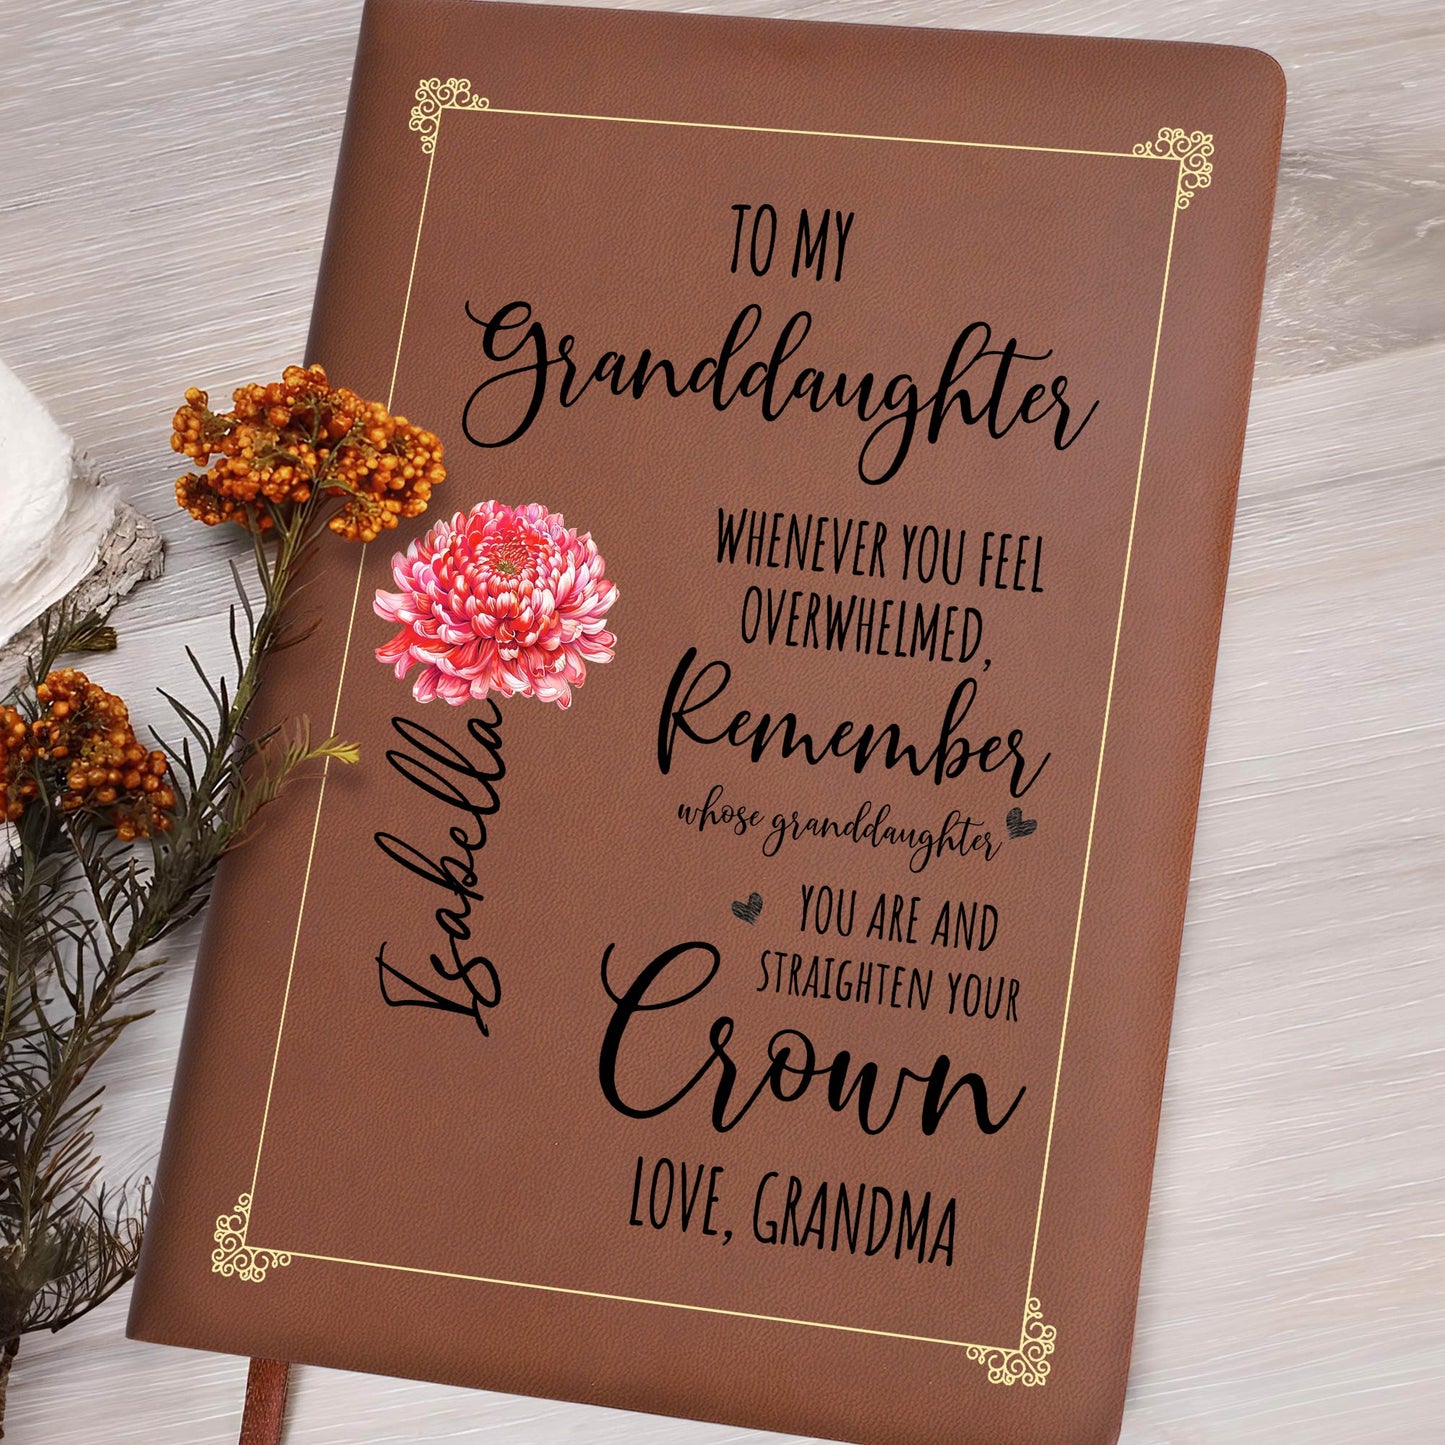 TO MY
Granddaughter
WHENEVER YOU FEEL
OVERWHELMED,
Remember
whose granddaughter
YOU ARE AND
STRAIGHTEN YOUR
Crown
LOVE, GRANDMA
Isabella